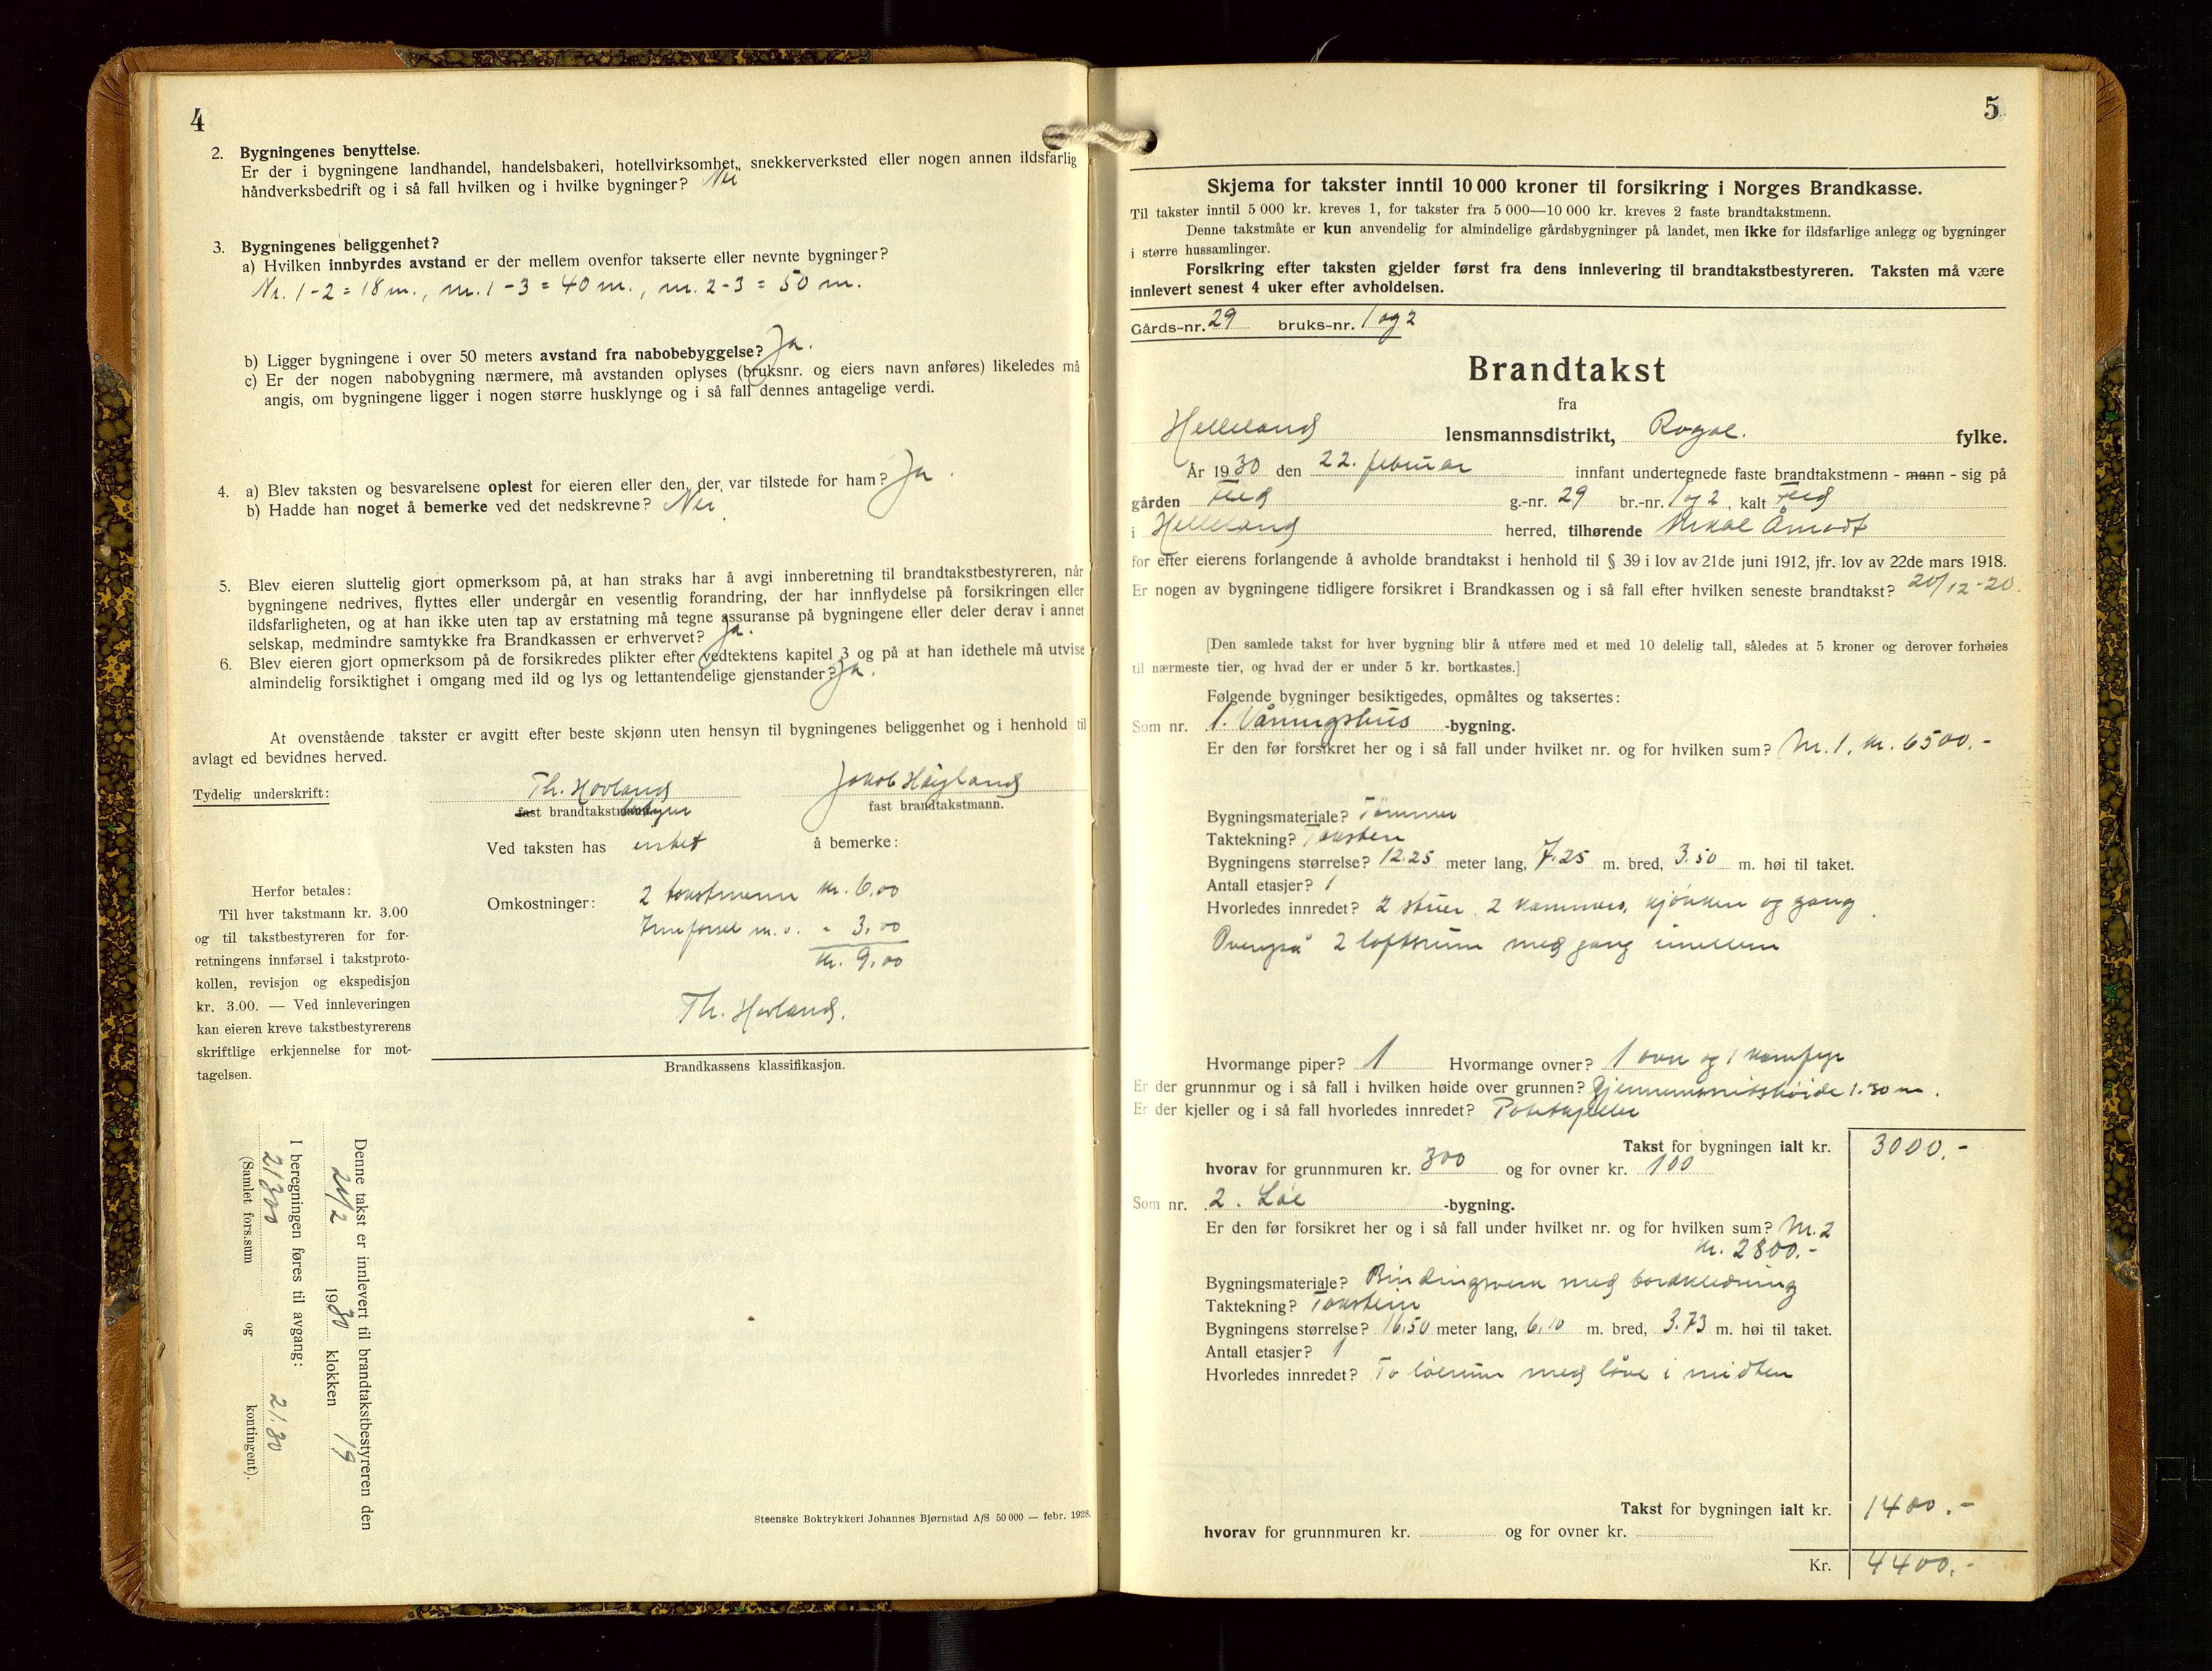 4
2. Bygningenes benyttelse.
Er der i bygningene landhandel, handelsbakeri, hotellvirksomhet, snekkerverksted eller nogen annen ildsfarlig
håndverksbedrift og i så fall hvilken og i hvilke bygninger? Nei
3. Bygningenes beliggenhet?
a) Hvilken innbyrdes avstand er der mellem ovenfor takserte eller nevnte bygninger?
Nr. 1-2 = 18 m., nr. 1-3 = 40 m., nr. 2-3 = 50 m.
b) Ligger bygningene i over 50 meters avstand fra nabobebyggelse? Ja.
c) Er der nogen nabobygning nærmere, må avstanden oplyses (bruksnr. og eiers navn anføres) likeledes må
angis, om bygningene ligger i nogen større husklynge og i så fall dennes antagelige verdi.
4. a) Blev taksten og besvarelsene oplest for eieren eller den, der var tilstede for ham? Ja.
b) Hadde han noget å bemerke ved det nedskrevne? Nei
5. Blev eieren sluttelig gjort opmerksom på, at han straks har å avgi innberetning til brandtakstbestyreren, når
bygningene nedrives, flyttes eller undergår en vesentlig forandring, der har innflydelse på forsikringen eller
ildsfarligheten, og at han ikke uten tap av erstatning må tegne assuranse på bygningene eller deler derav i annet
selskap, medmindre samtykke fra Brandkassen er erhvervet? Ja.
6. Blev eieren gjort opmerksom på de forsikredes plikter efter vedtektens kapitel 3 og på at han idethele må utvise
almindelig forsiktighet i omgang med ild og lys og lettantendelige gjenstander? Ja.
At ovenstående takster er avgitt efter beste skjønn uten hensyn til bygningenes beliggenhet og i henhold til
avlagt ed bevidnes herved.
Tydelig underskrift: Th. Hovland Jakob Høyland
fast brandtakst fast brandtakstmann.
Ved taksten has intet å bemerke:
Omkostninger: 2 takstmenn kr. 6,00
Innførsel m.v. " 3,00
kr. 9,00
Th. Hovland.
Herfor betales:
Til hver takstmann kr. 3.00
og til takstbestyreren for for-
retningens innførsel i takstproto-
kollen, revisjon og ekspedisjon
kr. 3.00. — Ved innleveringen
kan eieren kreve takstbestyrerens
skriftlige erkjennelse for mot-
tagelsen.
Brandkassens klassifikasjon.
Denne takst er innlevert til brandtakstbestyreren den
24/2 1930 klokken 19
I beregningen føres til avgang:
21300 21.30
(Samlet fors.sum og kontingent).
Steenske Boktrykkeri Johannes Bjørnstad A/S 50 000 — febr. 1928.
5
Skjema for takster inntil 10 000 kroner til forsikring i Norges Brandkasse.
Til takster inntil 5 000 kr. kreves 1, for takster fra 5 000—10 000 kr. kreves 2 faste brandtakstmenn.
Denne takstmåte er kun anvendelig for almindelige gårdsbygninger på landet, men ikke for ildsfarlige anlegg og bygninger
i større hussamlinger.
Forsikring efter taksten gjelder først fra dens innlevering til brandtakstbestyreren. Taksten må være
innlevert senest 4 uker efter avholdelsen.
Gårds-nr. 29 bruks-nr. 1 og 2
Brandtakst
fra
Helleland lensmannsdistrikt, Rogal. fylke.
År 1930 den 22. februar innfant undertegnede faste brandtakstmenn - mann - sig på
gården g.-nr. 29 br.-nr. 1 og 2, kalt
i Helleland herred, tilhørende Mikal Åmodt
for efter eierens forlangende å avholde brandtakst i henhold til § 39 i lov av 21de juni 1912, jfr. lov av 22de mars 1918.
Er nogen av bygningene tidligere forsikret i Brandkassen og i så fall efter hvilken seneste brandtakst? 20/12-20.
[Den samlede takst for hver bygning blir å utføre med et med 10 delelig tall, således at 5 kroner og derover forhøies
til nærmeste tier, og hvad der er under 5 kr. bortkastes.]
Følgende bygninger besiktigedes, opmåltes og taksertes:
Som nr. 1. Våningshus -bygning.
Er den før forsikret her og i så fall under hvilket nr. og for hvilken sum? Nr. 1, kr. 6500.-
Bygningsmateriale? Tømmer
Taktekning? Taksten
Bygningens størrelse? 12.25 meter lang, 7.25 m. bred, 3.50 m. høi til taket.
Antall etasjer? 1
Hvorledes innredet? 2 stuer, 2 kammers, kjøkken og gang
Ovenpå 2 loftsrum med gang imellem
Hvormange piper? 1 Hvormange ovner? 1 ovn og 1 komfyr
Er der grunnmur og i så fall i hvilken høide over grunnen? Gjennemsnitshøide 1.30 m.
Er der kjeller og i så fall hvorledes innredet? Potetkjeller
Takst for bygningen ialt kr. 3000.-
hvorav for grunnmuren kr. 300 og for ovner kr. 100
Som nr. 2. Løe -bygning.
Er den før forsikret her og i så fall under hvilket nr. og for hvilken sum? Nr. 2
kr. 2800.-
Bygningsmateriale? Bindingsverk med bordkledning
Taktekning? Takstein
Bygningens størrelse? 16.50 meter lang, 6.10 m. bred, 3.73 m. høi til taket.
Antall etasjer? 1
Hvorledes innredet? To løerum med låve i midten
Takst for bygningen ialt kr. 1400.-
hvorav for grunnmuren kr. og for ovner kr.
Kr. 4400.-